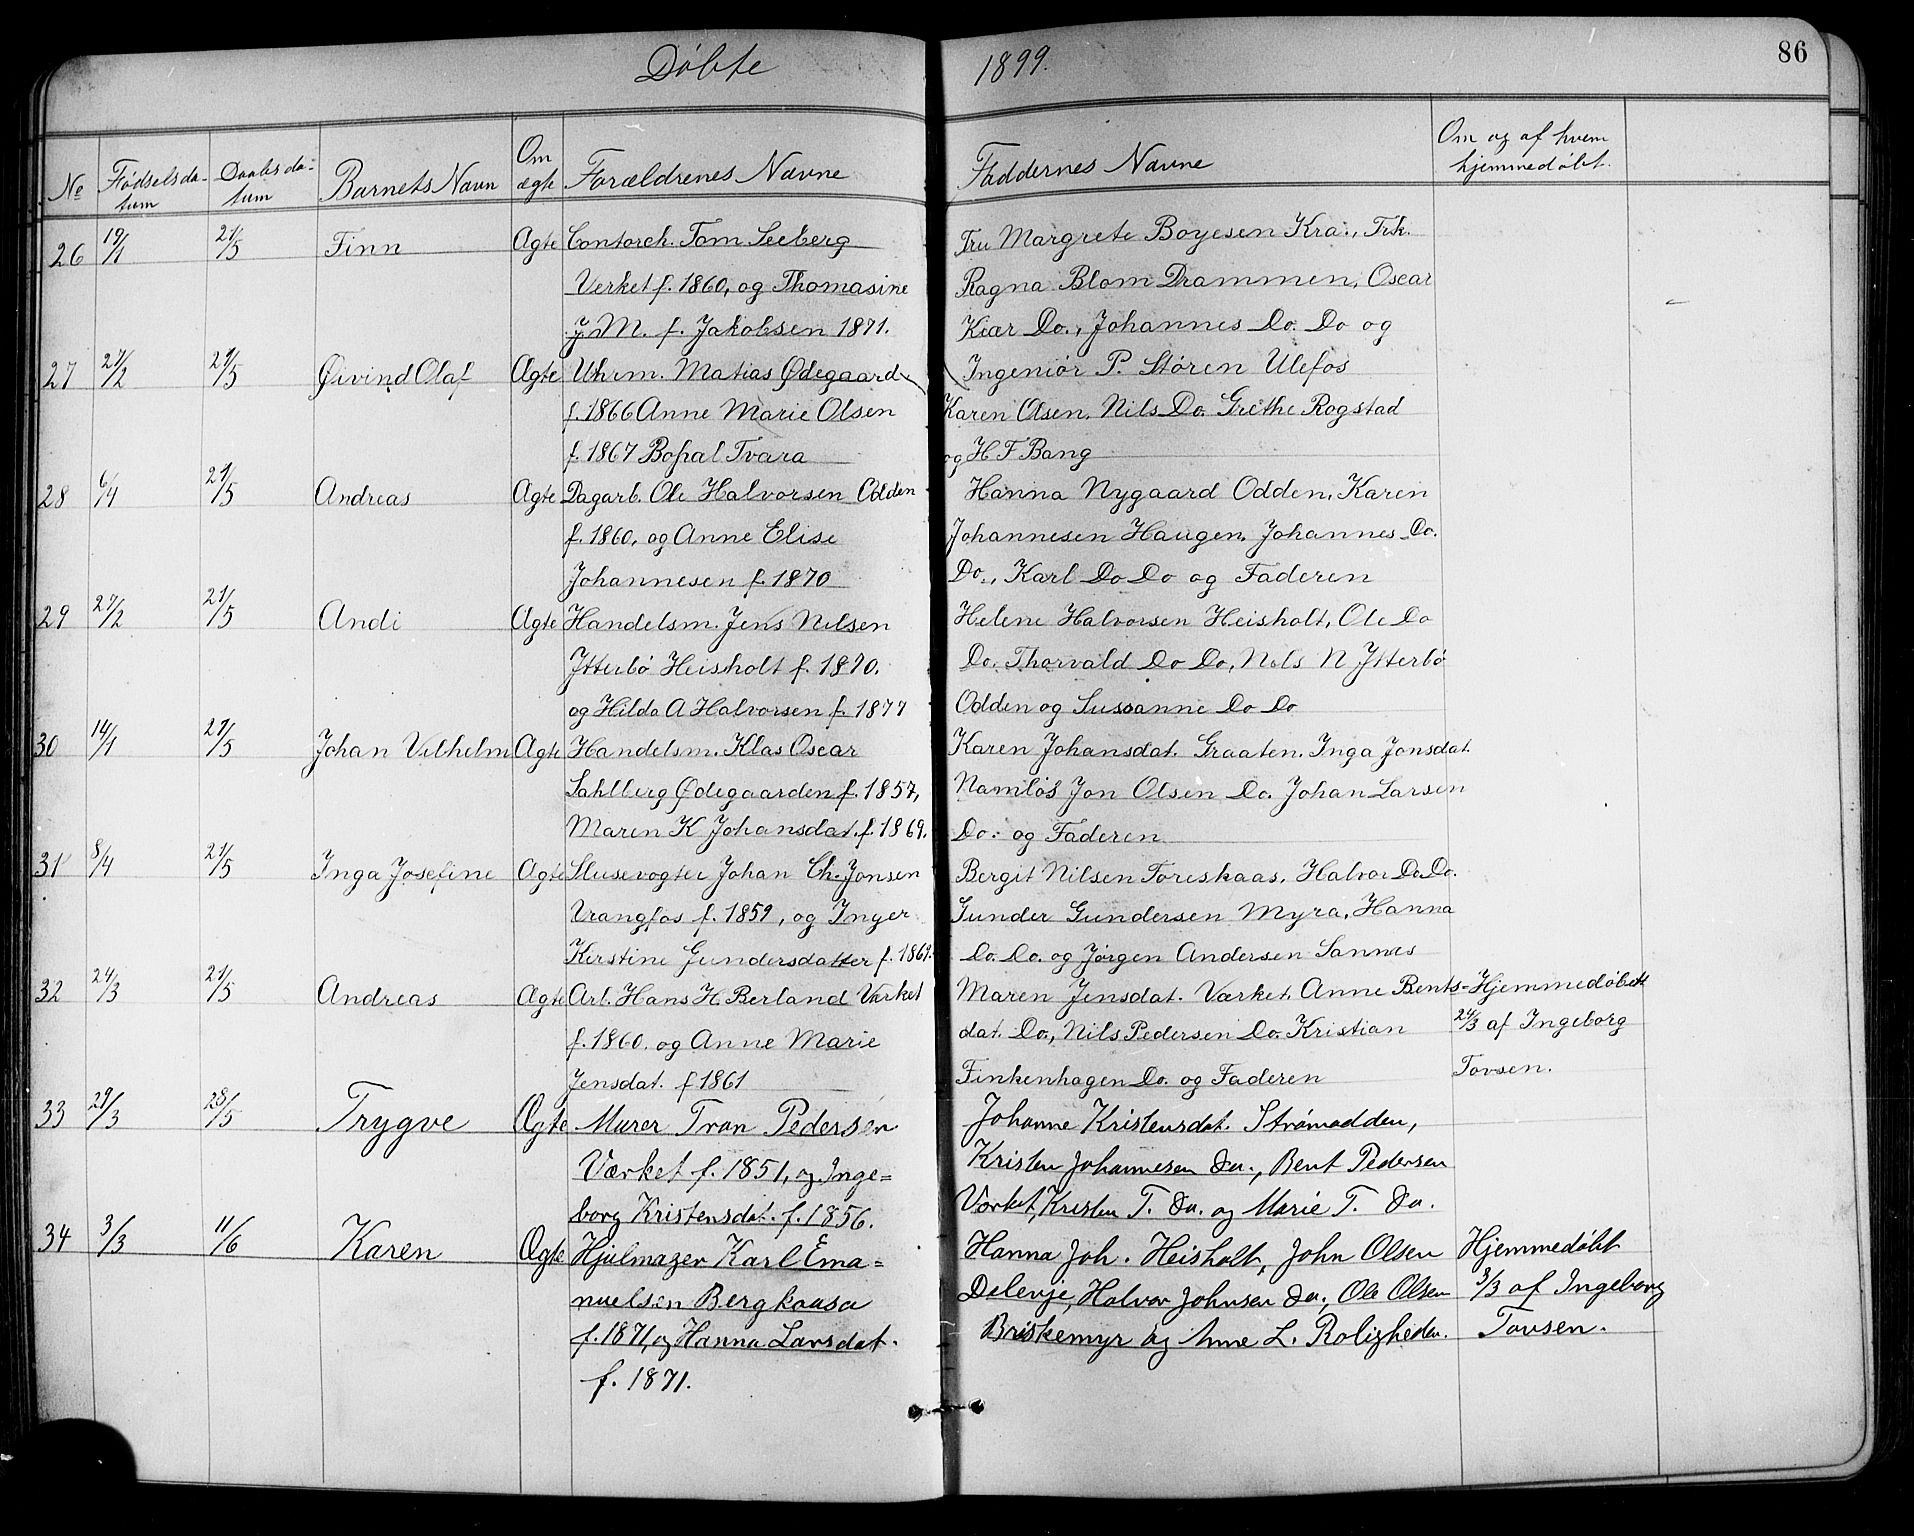 Døbte 1899. 86
№ Fødselsda- tum Daabsda- tum Barnets Navn Om ægte Forældrenes Navne Faddernes Navne Om og af hvem hjemmedøbt.
26 19/1 21/5 Finn Ægte Contorch. Tom Seeberg Fru Margrete Boyesen Kra., Frk.
Verket f. 1860, og Thomasine Ragna Blom Drammen, Oscar
J M. f. Jakobsen 1871. Kiær Do., Johannes Do. Do og
27 27/2 21/5 Øivind Olaf Ægte Uhrm. Matias Ødegaard Ingeniør P. Støren Ulefos
f. 1866 Anne Marie Olsen Karen Olsen, Nils Do. Grethe Rogstad
f. 1867 Bopæl Tvara og H F Bang
28 6/4 21/5 Andreas Ægte Dagarb. Ole Halvorsen Odden Hanna Nygaard Odden, Karen
f. 1860, og Anne Elise Johannesen Haugen, Johannes Do.
Johannesen f. 1870 Do., Karl Do Do og Faderen
29 27/2 21/5 Andi Ægte Handelsm. Jens Nilsen Helene Halvorsen Heisholt, Ole Do
Ytterbø Heisholt f. 1870. Do. Thorvald Do Do, Nils N Ytterbø
og Hilda A Halvorsen f. 1877 Odden og Sussanne Do Do
30 14/1 21/5 Johan Vilhelm Ægte Handelsm. Klas Oscar Karen Johansdat. Graaten. Inga Jonsdat.
Sahlberg Ødegaarden f. 1857, Namløs Jon Olsen Do. Johan Larsen
Maren K Johansdat. f. 1869. Do. og Faderen
31 8/4 21/5 Inga Josefine Ægte Slusevogter Johan Ch. Jonsen Bergit Nilsen Foreskaas, Halvor Do. Do.
Vrangfos f. 1859, og Inger Gunder Gundersen Myra, Hanna
Kirstine Gundersdatter f. 1869. Do. Do. og Jørgen Andersen Sannes
32 24/3 21/5 Andreas Ægte Arb. Hans H. Berland Værket Maren Jensdat. Værket, Anne Bents- Hjemmedøbt
f. 1860. og Anne Marie dat. Do., Nils Pedersen Do. Kristian 24/3 af Ingeborg
Jensdat. f 1861 Finkenhagen Do. og Faderen Tovsen.
33 29/3 28/5 Trygve Ægte Murer Tron Pedersen Johanne Kristensdat. Strømodden,
Værket f. 1851, og Inge= Kristen Johannesen do., Bent Pedersen
borg Kristensdat. f. 1856. Værket, Kristen T. do. og Marie T. do.
34 3/3 11/6 Karen Ægte Hjulmager Karl Ema= Hanna Joh. Heisholt, John Olsen Hjemmedøbt
nuelsen Bergkaasa Delevje, Halvor Johnsen do., Ole Olsen 8/3 af Ingeborg
f. 1871, og Hanna Larsdat. Briskemyr og Anne L. Roligheden. Tovsen.
f. 1871.